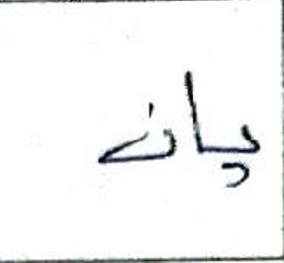 پانے